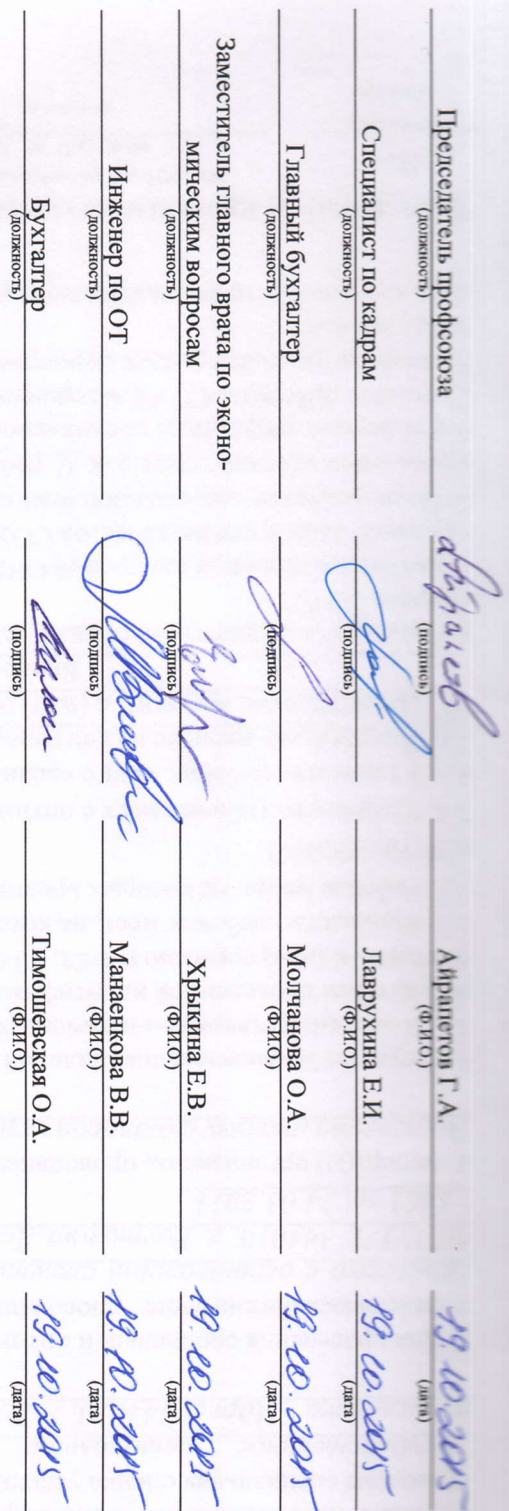 Председатель профсоюза Айрапетов Г.А. 19.10.2015
(должность) (подпись) (Ф.И.О.) (дата)
Специалист по кадрам Лаврухина Е.И. 19.10.2015
(должность) (подпись) (Ф.И.О.) (дата)
Главный бухгалтер Молчанова О.А. 19.10.2015
(должность) (подпись) (Ф.И.О.) (дата)
Заместитель главного врача по эконо-
мическим вопросам Хрыкина Е.В. 19.10.2015
(должность) (подпись) (Ф.И.О.) (дата)
Инженер по ОТ Манаенкова В.В. 19.10.2015
(должность) (подпись) (Ф.И.О.) (дата)
Бухгалтер Тимошевская О.А. 19.10.2015
(должность) (подпись) (Ф.И.О.) (дата)